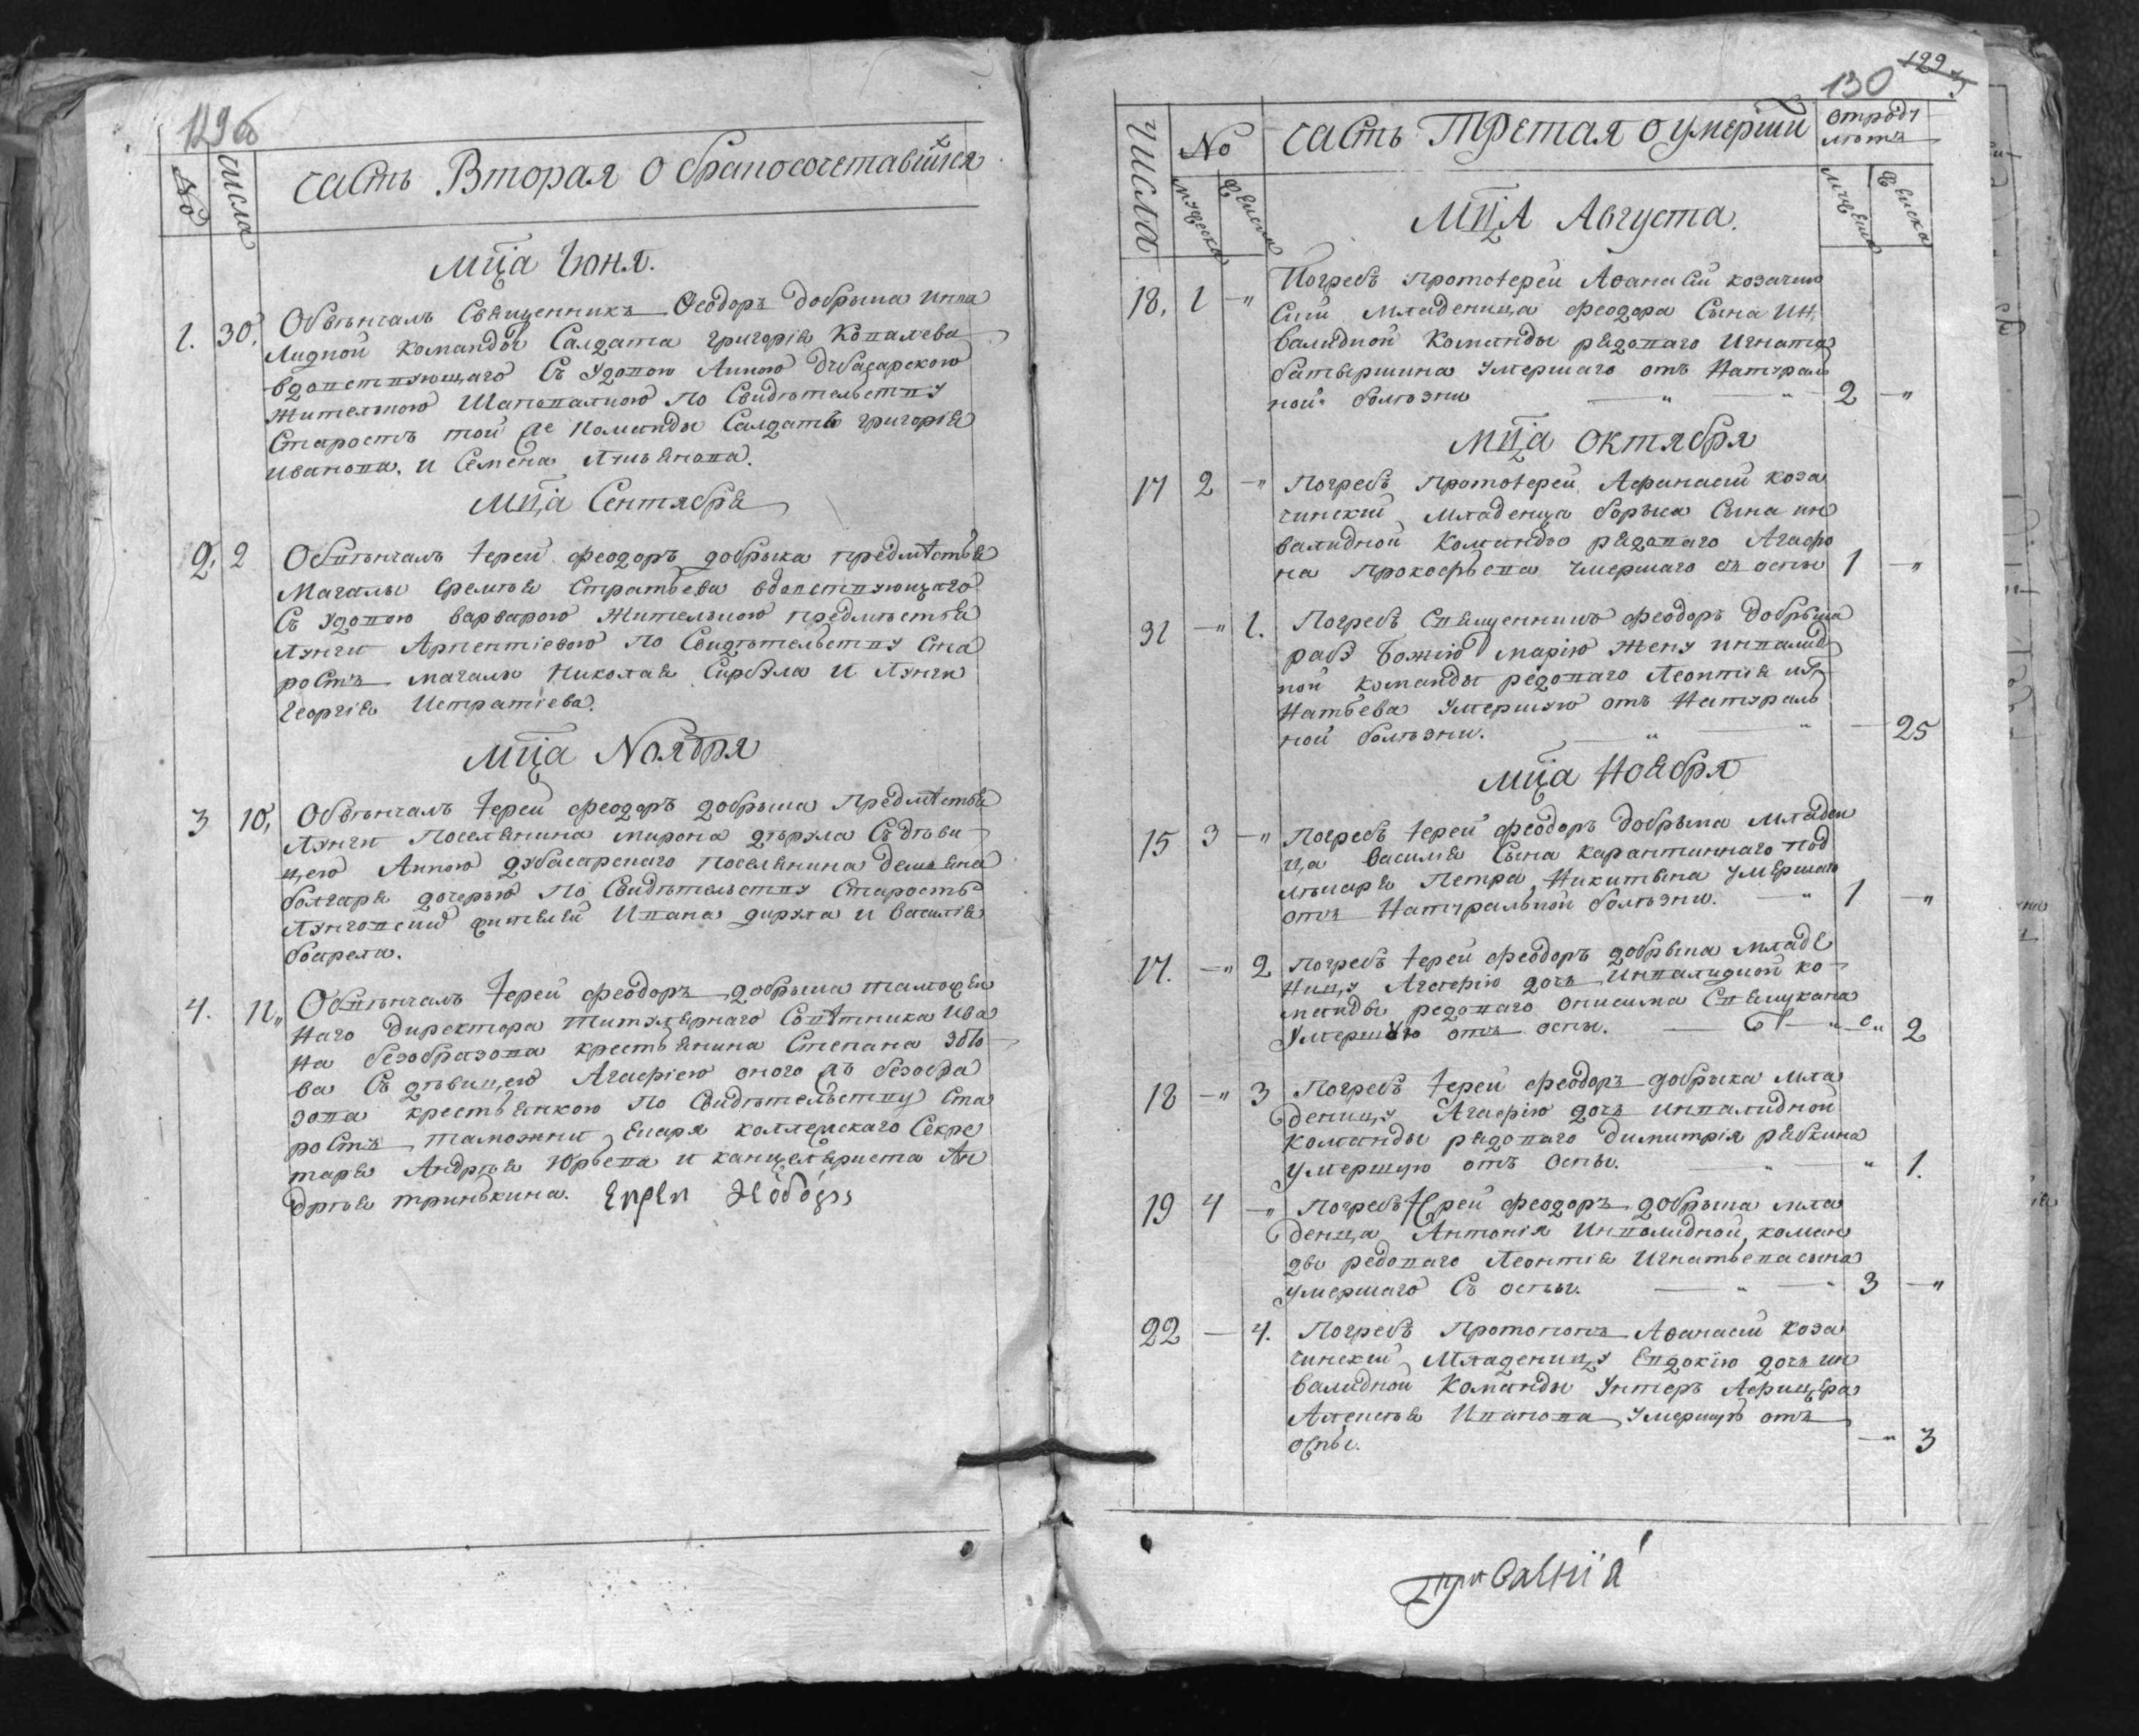 129об
№
числа
часть Вторая о бракосочетавшихся
мца Іюня.
1. 30, Обвѣнчалъ Священникъ Феодоръ Добрыка инва
лидной Команды Салдата Григорія Ковалева
вдовствующаго Съ Удовою Анною Дубасарскою
жителкою по Свидѣтельству
Старостъ той же Команды Салдатъ Григорія
Иванова. и Семена
мца Сентября
2, 2 Обвѣнчалъ Іерей Феодоръ добрыка предмѣстья
Магалы Еремѣя Стратьева вдовствующаго
Съ Удовою варварою Жителькою предмѣстья
Лунги Арпентіевою по Свидѣтельству Ста
ростъ магалы Николая и Лунги
Георгія Истратіева.
мца Ноября
3 10, Обвѣнчалъ Іерей Феодоръ добрыка Предмѣстья
Лунги Поселянина Мирона Съ дѣви
цею Анною дубасарскаго поселянина
болгаря дочерью По Свидѣтельству Старостъ
жителей Ивана и Василія
4. 11,, Обвѣнчалъ Іерей Феодоръ добрыка таможен
наго Директора Титулярнаго Совѣтника Ива
на безобразова крестьянина Степана
ва Съ дѣвицею Агафіею оного жъ безобра
зова крестьянкою по Свидѣтельству Ста
ростъ таможни Коллежскаго Секре
таря Андрѣя Юрьева и канцеляриста Ан
дрѣя тринькина.
130 129
числа
№
мужеска
женска
часть Третая о умерши
отроду
лѣтъ
женска
мца Августа.
18, 1 -" Погребъ Протоіерей Афанасій козачин
Скій Младенца Феодора Сына Ин,
валидной Команды рядоваго Игната
умершаго отъ Натураль
ной болѣзни 2 -"
мца октября
17 2 -" Погребъ Протоіерей Афанасій коза
чинскій Младенца борыса Сына ин
валидной Команды рядоваго Агафо
на Прокофьева умершаго съ оспы 1 -"
31 -" 1. Погребъ Священникъ Феодоръ Добрыка
рабу Божію марію жену инвалид
ной команды редоваго Леонтія иг,
натьева умершую отъ Натураль
ной болѣзни. 25
мца Ноября
15 3 -" Погребъ Іерей Феодоръ Добрыка младен
ца василія Сына карантиннаго под
лѣкаря Петра Никитина умершаго
отъ Натуральной болѣзни. 1 -"
17. -" 2 Погребъ Іерей Феодоръ добрыка младе
ницу Агафію дочь инвалидной ко
манды редоваго
умершую отъ оспы. 2
18 -" 3 Погребъ Іерей Феодоръ добрыка мла
деницу Агафію дочь инвалидной
команды рядоваго Димитрія рябкина
умершую отъ Оспы. 1.
19 4 -" Погребъ Іерей Феодоръ добрыка мла
денца Антонія Инвалидной коман
ды редоваго Леонтія Игнатьева сына
умершаго Съ оспы. 3 -"
22 - 4. Погребъ Протопопъ Афанасій Коза
чинскій Младеницу Евдокію дочь ин
валидной Команды унтеръ Афицера
Алексѣя Иванова умершую отъ
оспы. -" 3